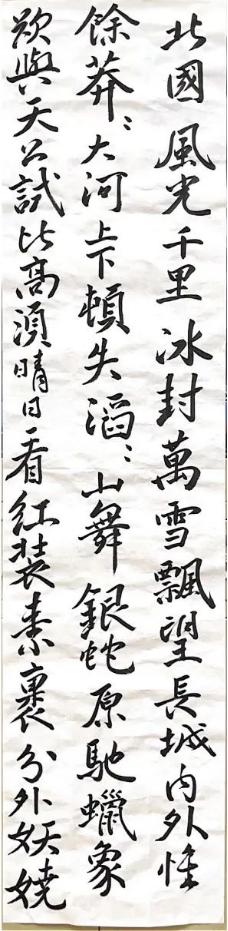 北國風光千里冰封萬雪飄望長城内外惟
餘莽〻大河上下頓失滔〻山舞銀蛇原馳蠟象
欲與天公試比高須晴日看紅裝素裹分外妖嬈